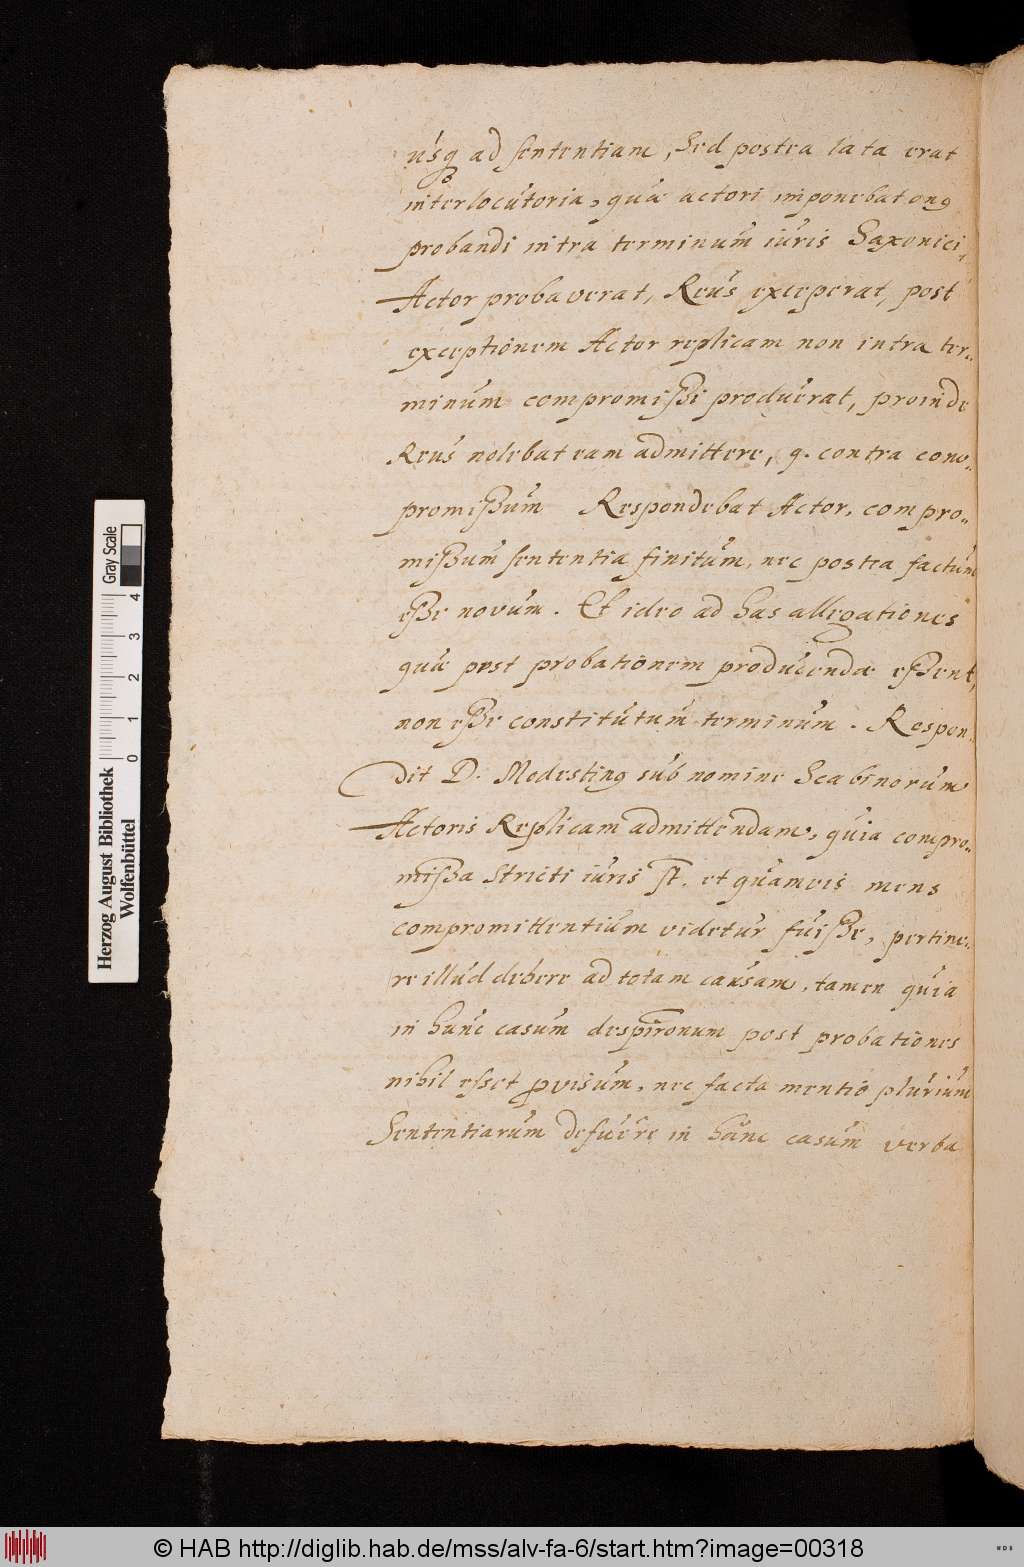 usq₃ ad sententiam, Sed postea lata erat
interlocutoria, quæ actori imponebat onꝰ
probandi intra terminum iuris Saxonici,
Actor probaverat, Reus exceperat, post
exceptionem Actor replicam non intra ter=
minum compromißi produxerat, proinde
Reus nolebat eam admittere, q. contra com=
promißum Respondebat Actor, compro=
mißum sententia finitum, nec postea factum
eße novum. Et ideo ad has allegationes
quæ post probationem producendæ eßent,
non eße constitutum terminum. Respon=
dit D. Modestinꝰ sub nomine Scabinorum
Actoris Replicam admittendam, quia compro=
mißa stricti iuris st. et quamvis mens
compromittentium videtur fuiße, pertine=
re illud debere ad totam causam, tamen quia
in hunc casum post probationes
nihil esset ꝓvisum, nec facta mentio plurium
Sententiarum defuere in hunc casum verba
Herzog August Bibliothek
Wolfenbüttel
Gray Scale
0 1 2 3 4
© HAB http://diglib.hab.de/mss/alv-fa-6/start.htm?image=00318